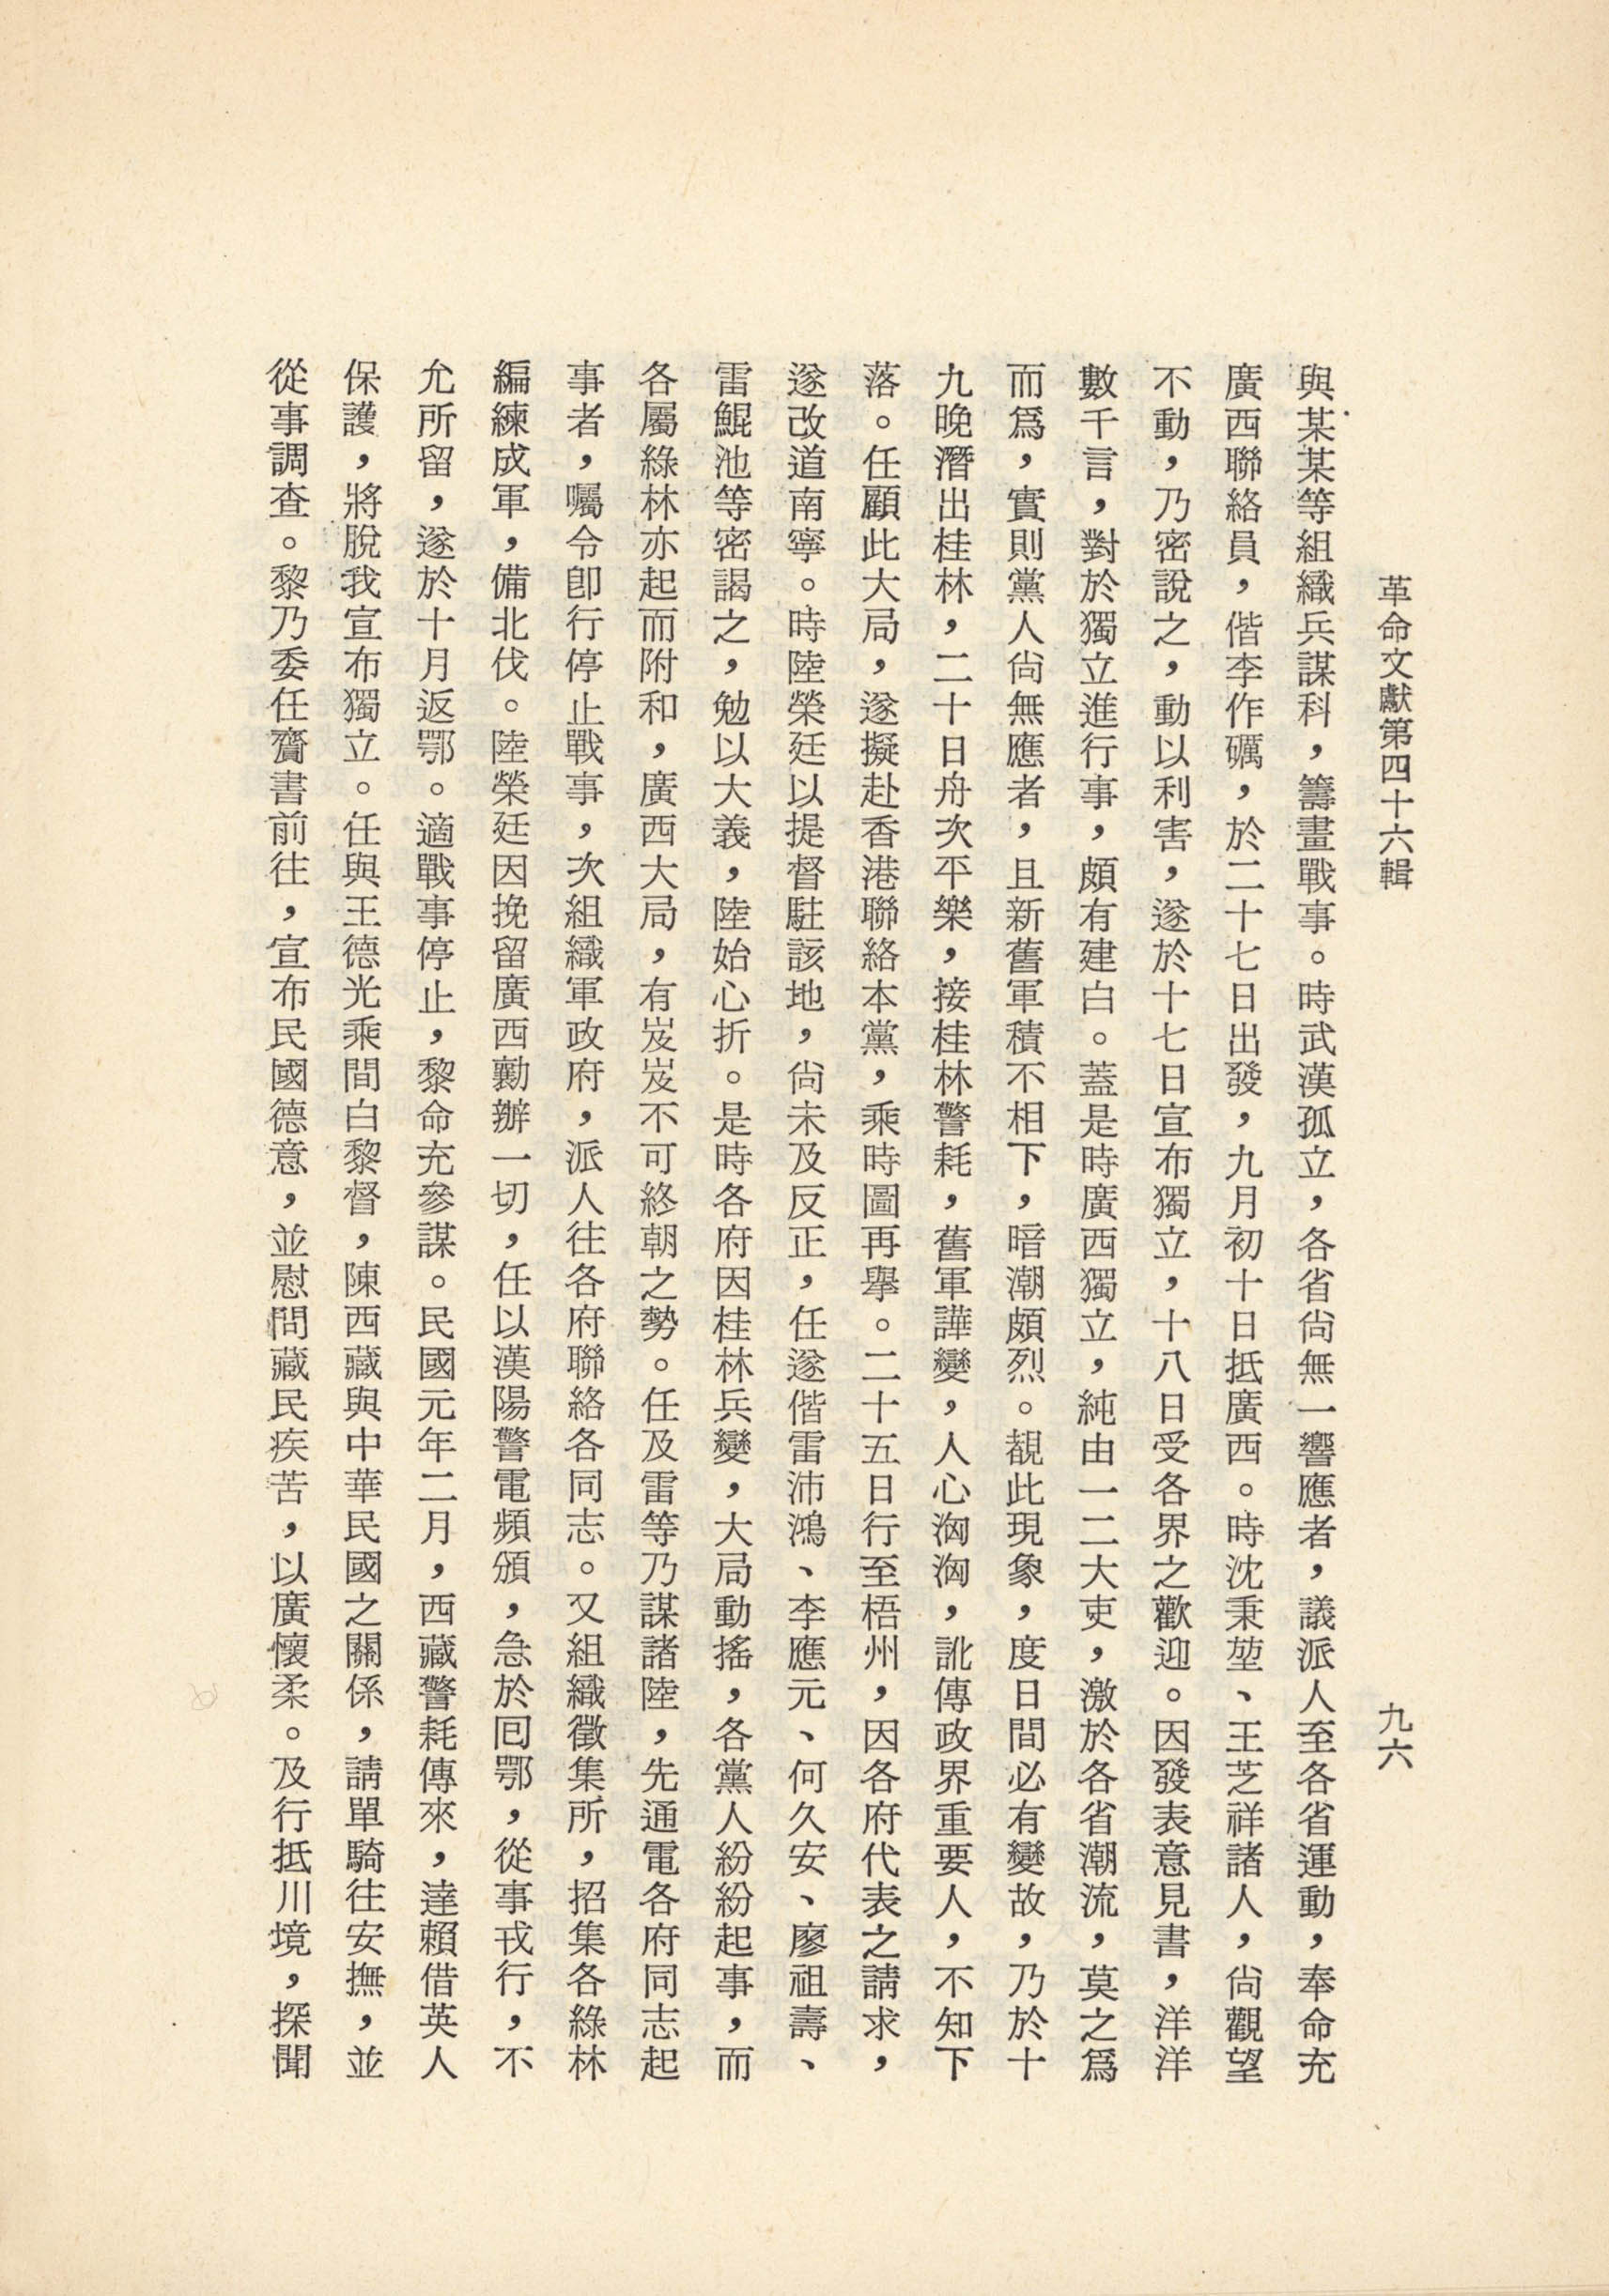 革命文獻第四十六輯
九六
與某某等組織兵謀科，籌畫戰事。時武漢孤立，各省尙無一響應者，議派人至各省運動，奉命充
廣西聯絡員，偕李作礪，於二十七日出發，九月初十日抵廣西。時沈秉堃、王芝祥諸人，尙觀望
不動，乃密說之，動以利害，遂於十七日宣布獨立，十八日受各界之歡迎。因發表意見書，洋洋
數千言，對於獨立進行事，頗有建白。蓋是時廣西獨立，純由一二大吏，激於各省潮流，莫之爲
而爲，實則黨人尙無應者，且新舊軍積不相下，暗潮頗烈。覩此現象，度日間必有變故，乃於十
九晚潛出桂林，二十日舟次平樂，接桂林警耗，舊軍譁變，人心洶洶，訛傳政界重要人，不知下
落。任顧此大局，遂擬赴香港聯絡本黨，乘時圖再舉。二十五日行至梧州，因各府代表之請求，
遂改道南寧。時陸榮廷以提督駐該地，尙未及反正，任遂偕雷沛鴻、李應元、何久安、廖祖壽、
雷鯤池等密謁之，勉以大義，陸始心折。是時各府因桂林兵變，大局動搖，各黨人紛紛起事，而
各屬綠林亦起而附和，廣西大局，有岌岌不可終朝之勢。任及雷等乃謀諸陸，先通電各府同志起
事者，囑令卽行停止戰事，次組織軍政府，派人往各府聯絡各同志。又組織徵集所，招集各綠林
編練成軍，備北伐。陸榮廷因挽留廣西勷辦一切，任以漢陽警電頻頒，急於回鄂，從事戎行，不
允所留，遂於十月返鄂。適戰事停止，黎命充參謀。民國元年二月，西藏警耗傳來，達賴借英人
保護，將脫我宣布獨立。任與王德光乘間白黎督，陳西藏與中華民國之關係，請單騎往安撫，並
從事調查。黎乃委任齎書前往，宣布民國德意，並慰問藏民疾苦，以廣懷柔。及行抵川境，探聞